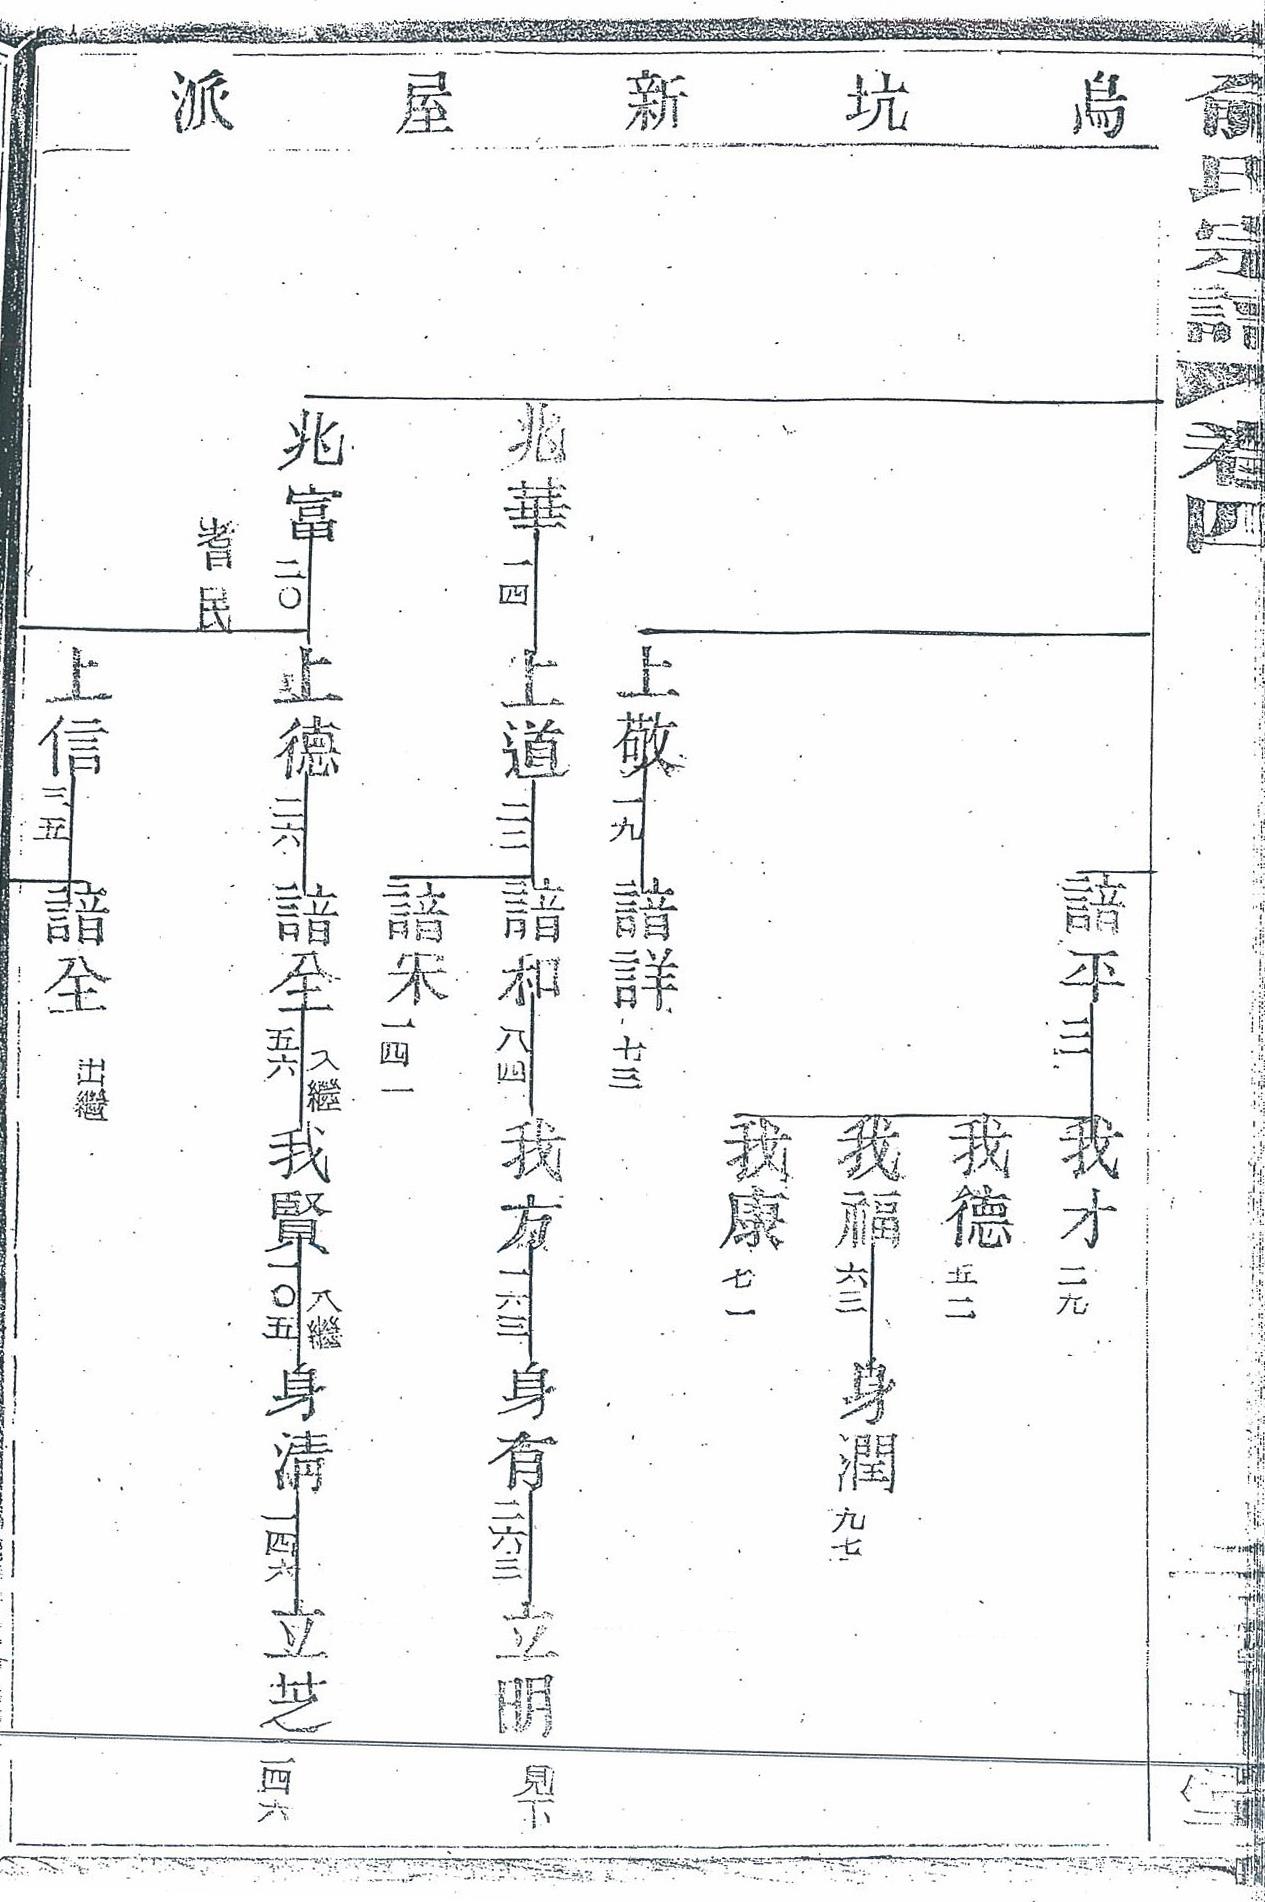 俞氏宗譜 卷四
烏坑新屋派
諳平 三一
我才 二九
我德 五二
我福 六三
身潤 九七
我康 七一
上敬 一九
諳詳 七三
兆華 一四
上道 二二
諳和 八四
我方 一六三
身有 二六三
立明 見下
諳宋 一四一
兆富 二〇
耆民
上德 二六
諳全 五六 入繼
我賢 一〇五 入繼
身淸 一四六
立芝 一四六
上信 三五
諳全 出繼